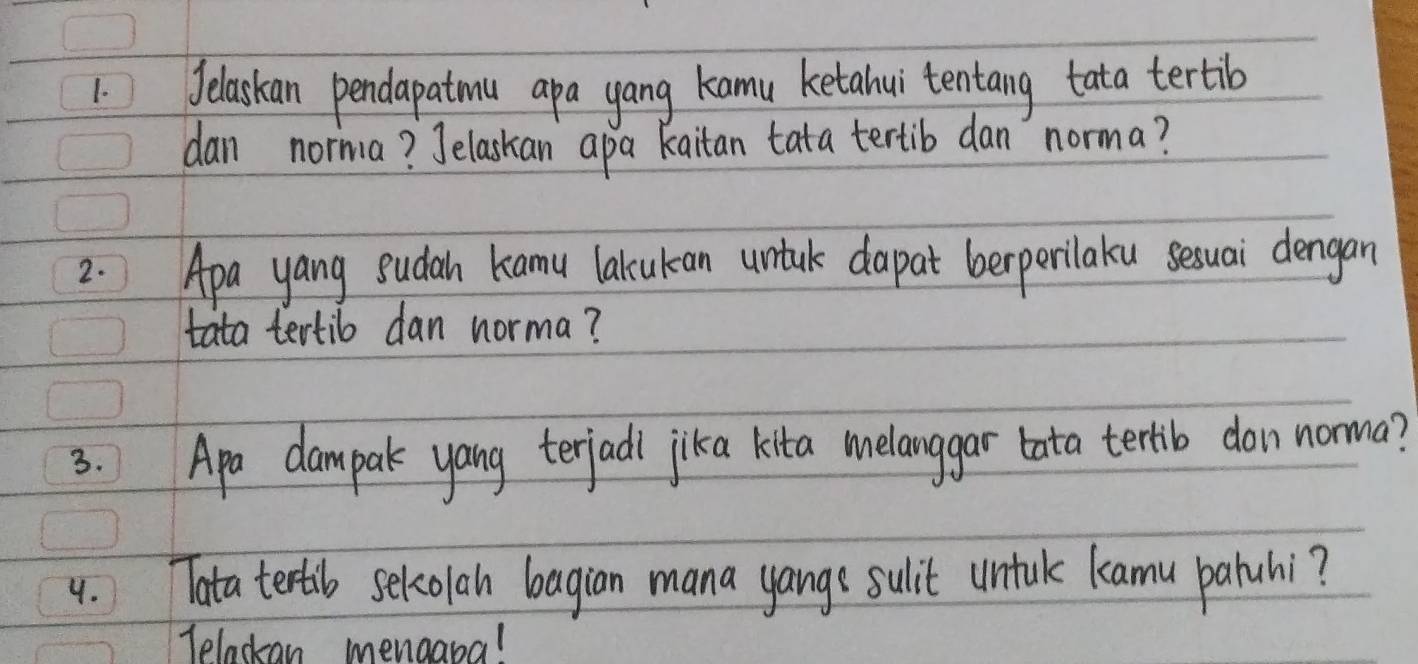 1. Jelaskan pendapatmu apa yang kamu ketahui tentang tata tertib
dan norma? Jelaskan apa kaitan tata tertib dan norma?
2. Apa yang sudah kamu lakukan untuk dapat berperilaku sesuai dengan
tata tertib dan norma?
3. Apa dampak yang terjadi jika kita melanggar tata tertib dan norma?
4. Tata tertib sekolah bagian mana yangs sulit untuk kamu patuhi?
Jelaskan mengapa!